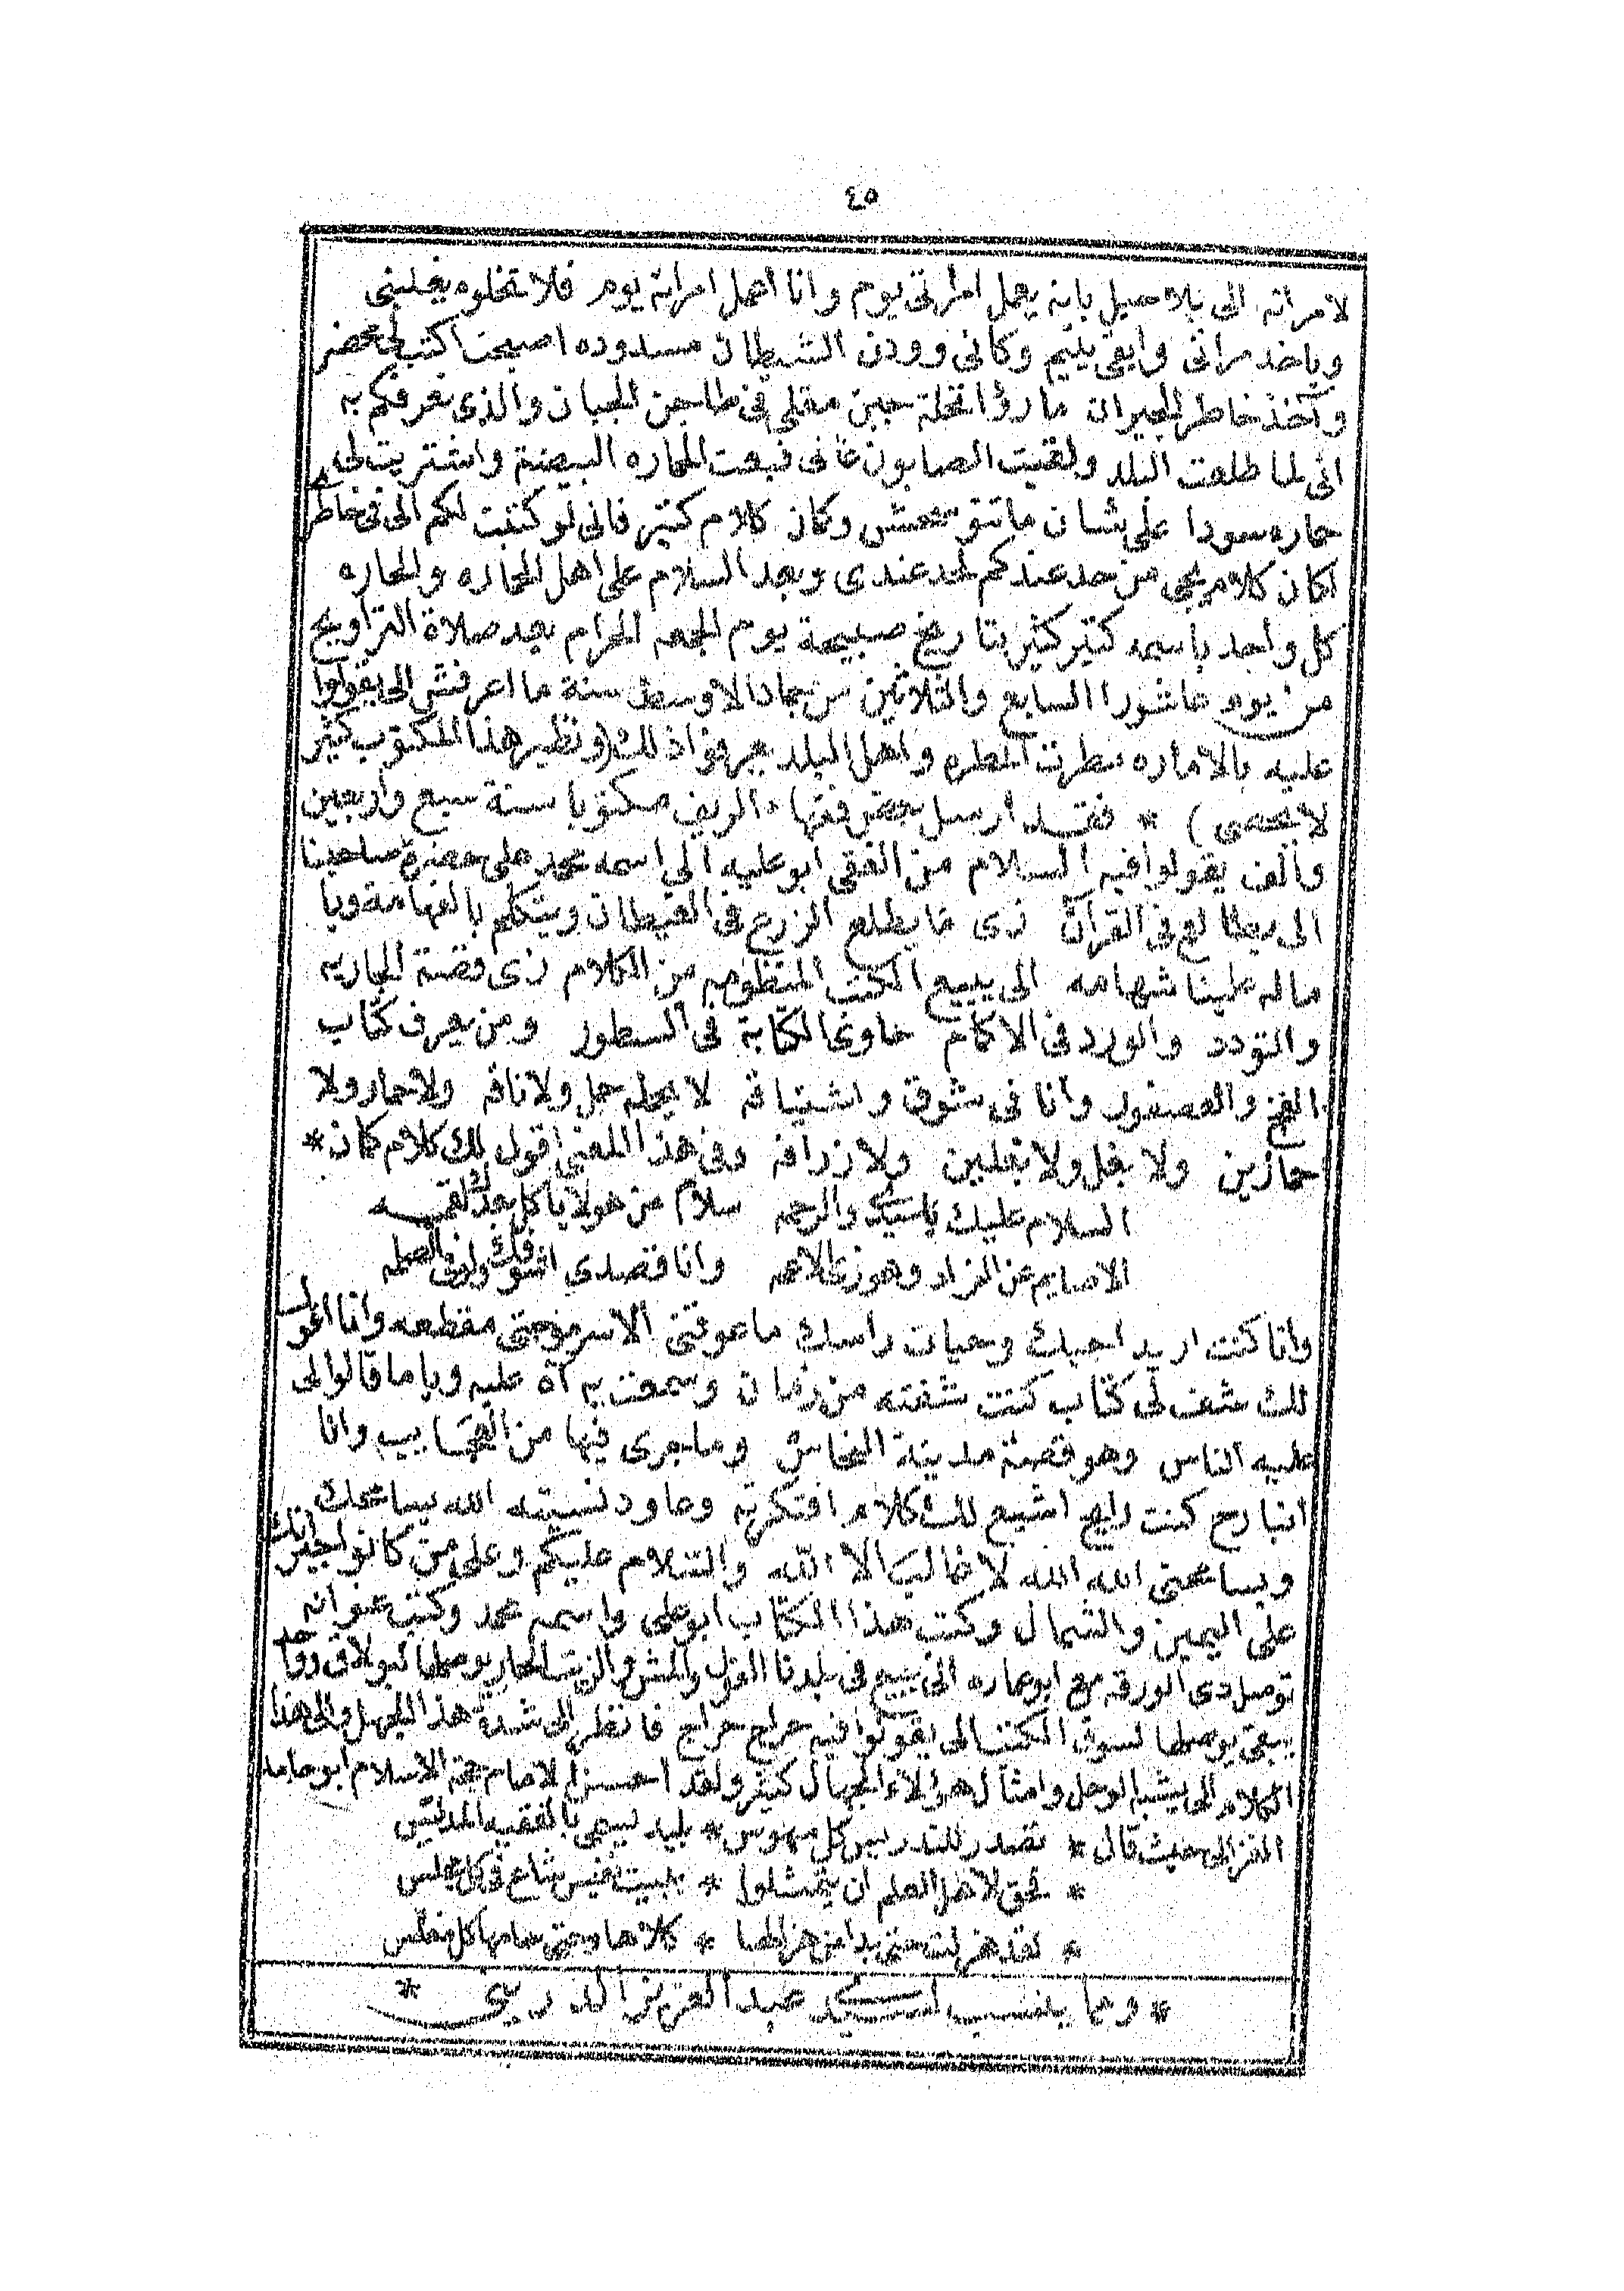 ٤٥
لامراته الى بلا صيل بانه يعمل امراتى يوم وانا اعمل امراته يوم فلا تخلوه يغلبنى
وياخد مراتى وابقى يتيم وكانى وودن الشيطان مسدوده اصبحت اكتب لى محضر
وآخذ خاطر الجيران ما رؤا نخلة جبن مقلى فى طاجن الجبان والذى نعرفكم به
انى لما طلعت البلد ولقيت الصابون غالى فبعت الحماره البيضة واشتريت لى
حماره سودا على شان ما تتوسخش وكمان كلام كتير فانى لو كتبت لكم الى فى خاطرى
لكان كلام يجى من حد عندكم لحد عندى وبعد السلام على اهل الحاره والحاره
كل واحد باسمه كتير كثير بتاريخ صبيحة يوم الجمعه الحرام بعد صلاة التراويح
من يوم عاشورا السابع والثلاثين من جماد الاوسط سنة ما اعرفش الى يقولوا
عليه بالاماره مطرت المطره واهل البلد يعرفوا ذلك (ونظير هذا المكتوب كثير
لا يحصى) * فقد أرسل بعض فقهاء الريف مكتوبا سنة سبع واربعين
والف يقولوا فيه السلام من الفقى ابو عليه الى اسمه محمد على حضرة صاحبنا
الى يطالع فى القرآن زى ما يطلع الزرع فى الغيطان ويتكلم بالفهامة ويا
ماله علينا شهامه الى يبيع الكتب المنظومه من الكلام زى قصة الجاريه
والتودد والورد فى الاكمام حاوى الكتابة فى السطور ومن يعرف كتاب
الفخ والعصفور وانا فى شوق واشتياقه لا يحمله جمل ولا ناقه ولا حمار ولا
حمارين ولا بغل ولا بغلين ولا زرافه وفى هذا المعنى اقول لك كلام كمان *
السلام عليك يا سيدى والرحمه سلام من هو لا ياكل بعدك لقمـه
الا صايم عن الزاد وهو زى الاعمه وانا قصدى اشوفك ولو فى الضلمه
وانا كنت اريد اجيلك وحيات راسك ما عوقنى الا سرموجتى مقطعه وانا اقول
لك شف لى كتاب كنت شفته من زمان وسمعت به آه عليه ويا ما قالوا لى
عليه الناس وهو قصة مدينة النحاس وما جرى فيها من العجايب وانا
انبارح كنت رايح اشيع لك كلام افتكرته وعاود نسيته الله يسامحك
ويسامحنى الله الله لا غالب الا الله والسلام عليكم وعلى من كانوا جيرانك
على اليمين والشمال وكتب هذا الكتاب ابو على واسمه محمد وكتب عنوانه
توصل دى الورقه مع ابو عماره الى يبيع فى بلدنا الغزل والمش والزيت الحار يوصلها لبولاق
يبقى يوصلها لسوق الكتب الى يقولوا فيه حراج حراج فانظر الى شدة هذا الجهل والى هذا
الكلام الى يشبه الوحل وامثال هؤلاء الجهال كثير ولقد احسن الامام حجة الاسلام ابو حامد
الغزالى حيث قال * تصدر للتدريس كل مهوس * بليد تسمى بالفقيه المدرس
* فحق لاهل العلم ان يتمثلوا * ببيت نفيس شاع فى كل مجلس
* لقد هزلت حتى بدا من هزالها * كلاها وحتى سامها كل مفلس
* ومما ينسب لسيدى عبد العزيز الديرينى *